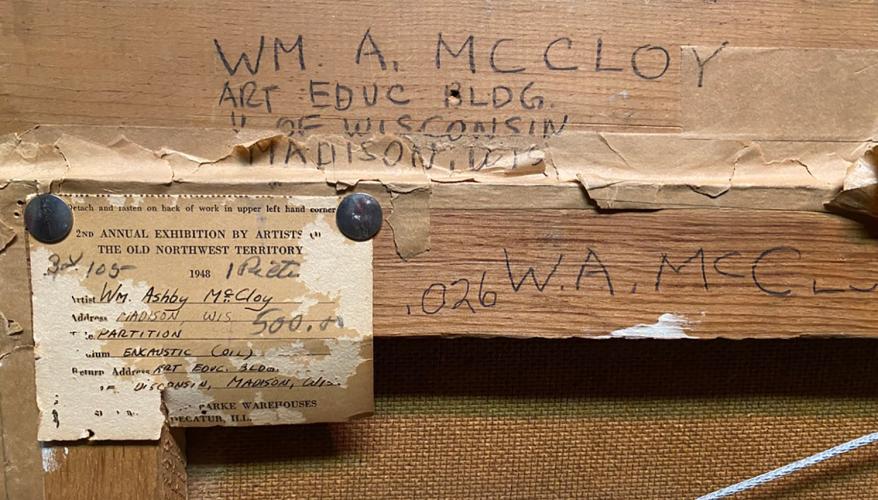 WM. A. MCCLOY
ART EDUC BLDG.
" OF WISCONSIN
MADISON, WIS
Detach and fasten on back of work in upper left hand corner
2ND ANNUAL EXHIBITION BY ARTISTS
THE OLD NORTHWEST TERRITORY
105 1948
Artist Wm. Ashby McCloy
Address MADISON WIS 500.00
PARTITION
ium ENCAUSTIC (OIL)
Return Address ART EDUC. BLDG.
OF WISCONSIN, MADISON, WIS.
PARKE WAREHOUSES
DECATUR, ILL.
.026 W.A. McC